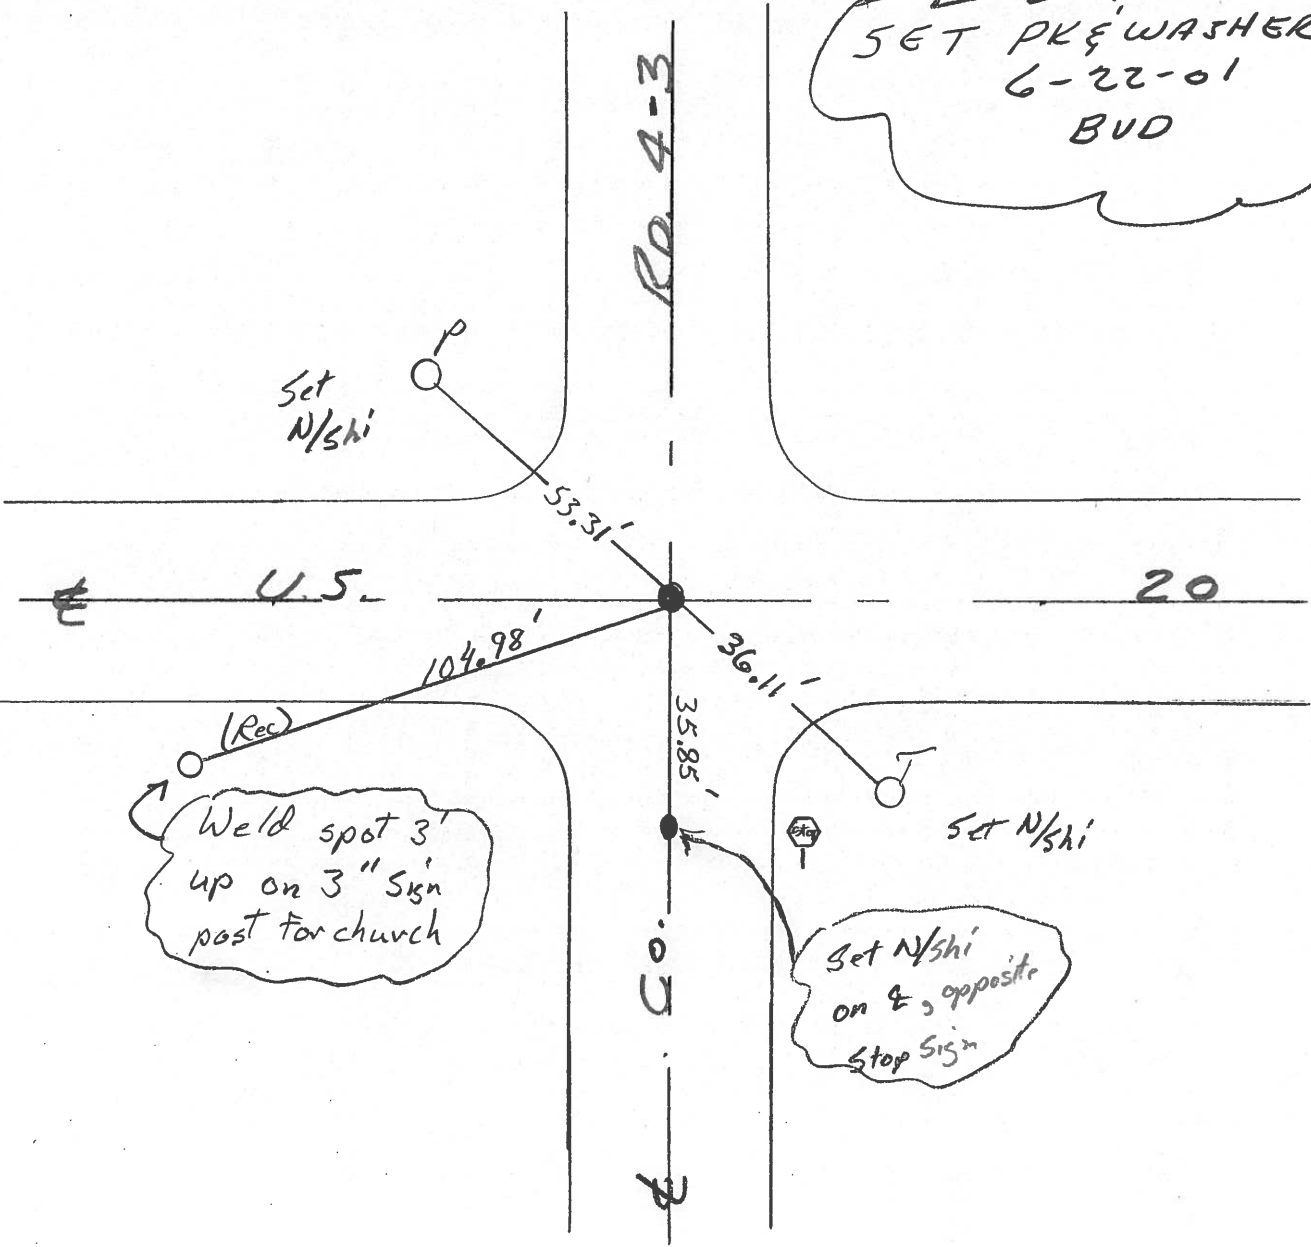 SET PK & WASHER
6-22-01
BUD
Rd. 4-3
P
Set
N/shi
53.31'
℄ U.S. 20
104.98'
36.11'
(Rec)
35.85'
T
STOP
Set N/shi
Weld spot 3'
up on 3" Sign
post for church
Set N/shi
on ℄, opposite
Stop Sign
℄ Co.